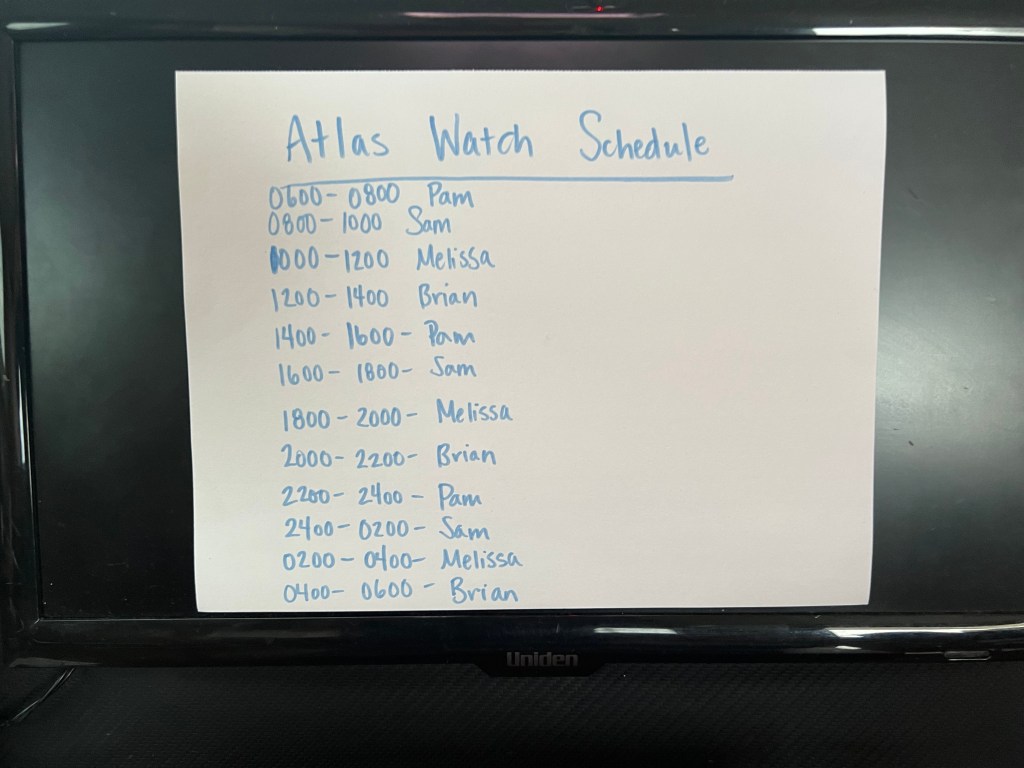 Atlas Watch Schedule
0600 - 0800 Pam
0800 - 1000 Sam
1000 - 1200 Melissa
1200 - 1400 Brian
1400 - 1600 - Pam
1600 - 1800 - Sam
1800 - 2000 - Melissa
2000 - 2200 - Brian
2200 - 2400 - Pam
2400 - 0200 - Sam
0200 - 0400 - Melissa
0400 - 0600 - Brian
Uniden